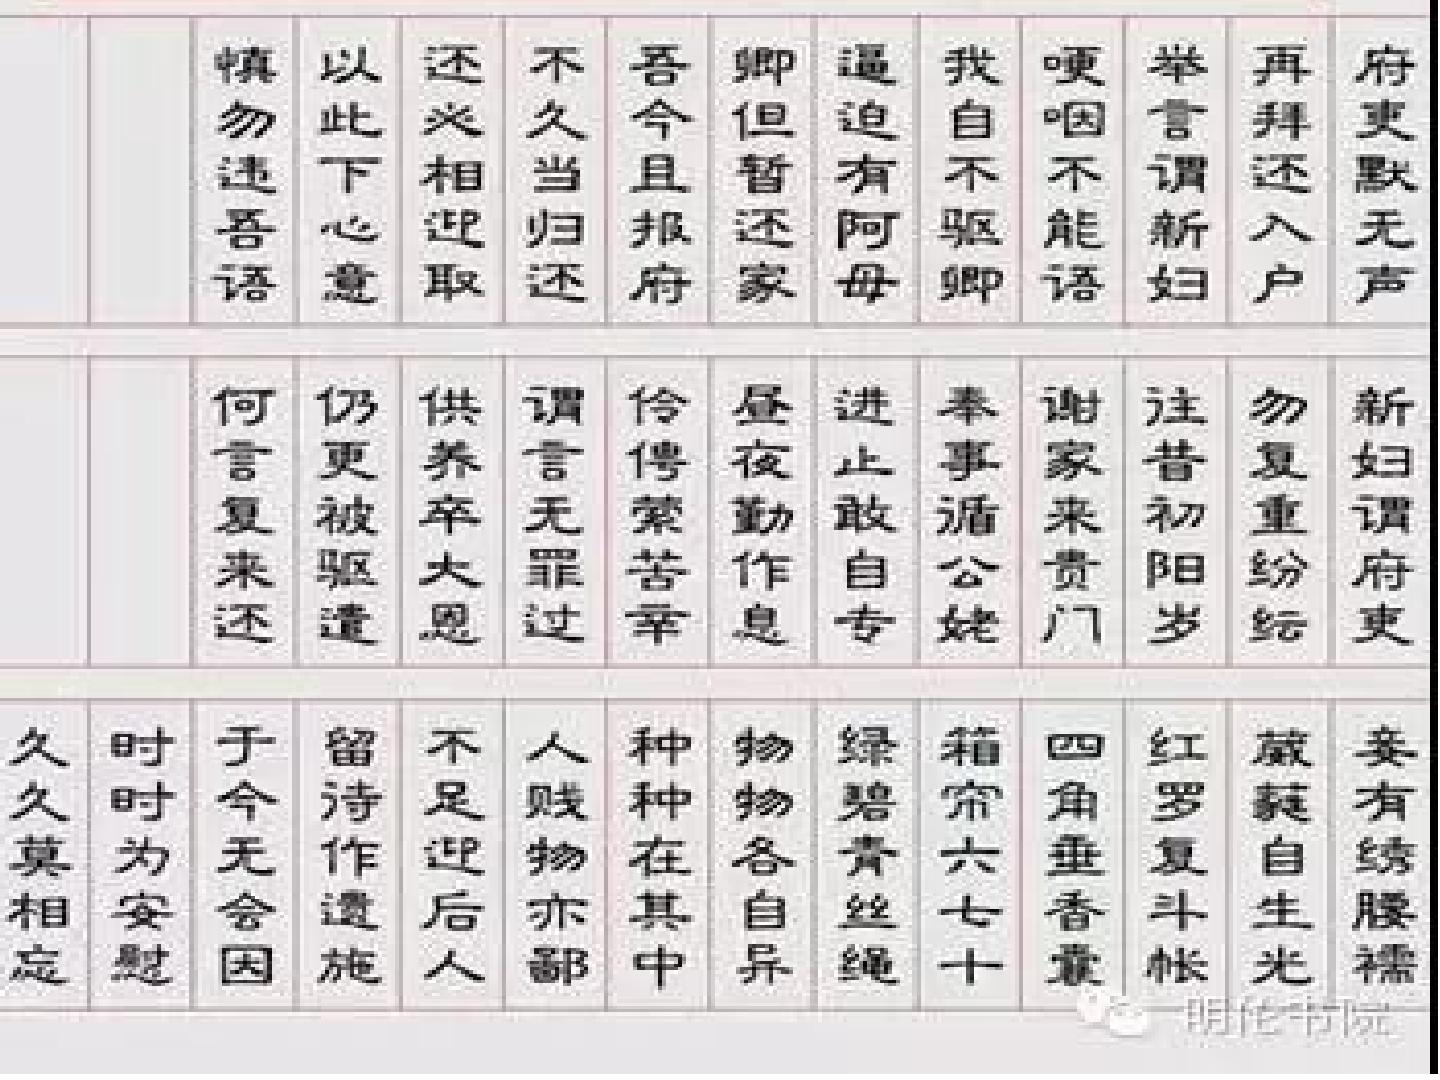 府吏默无声
再拜还入户
举言谓新妇
哽咽不能语
我自不驱卿
逼迫有阿母
卿但暂还家
吾今且报府
不久当归还
还必相迎取
以此下心意
慎勿违吾语
新妇谓府吏
勿复重纷纭
往昔初阳岁
谢家来贵门
奉事循公姥
进止敢自专
昼夜勤作息
伶俜萦苦辛
谓言无罪过
供养卒大恩
仍更被驱遣
何言复来还
妾有绣腰襦
葳蕤自生光
红罗复斗帐
四角垂香囊
箱帘六七十
绿碧青丝绳
物物各自异
种种在其中
人贱物亦鄙
不足迎后人
留待作遗施
于今无会因
时时为安慰
久久莫相忘
明伦书院